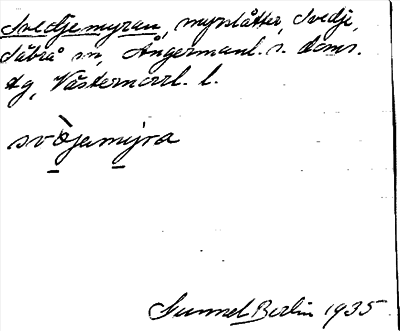 Svedjemyran, myrslåtter, Svedje,
Säbrå sn, Ångermanl. s. doms.
dg, Västernorrl. l.
svòjemyra
Gunnel Berlin 1935